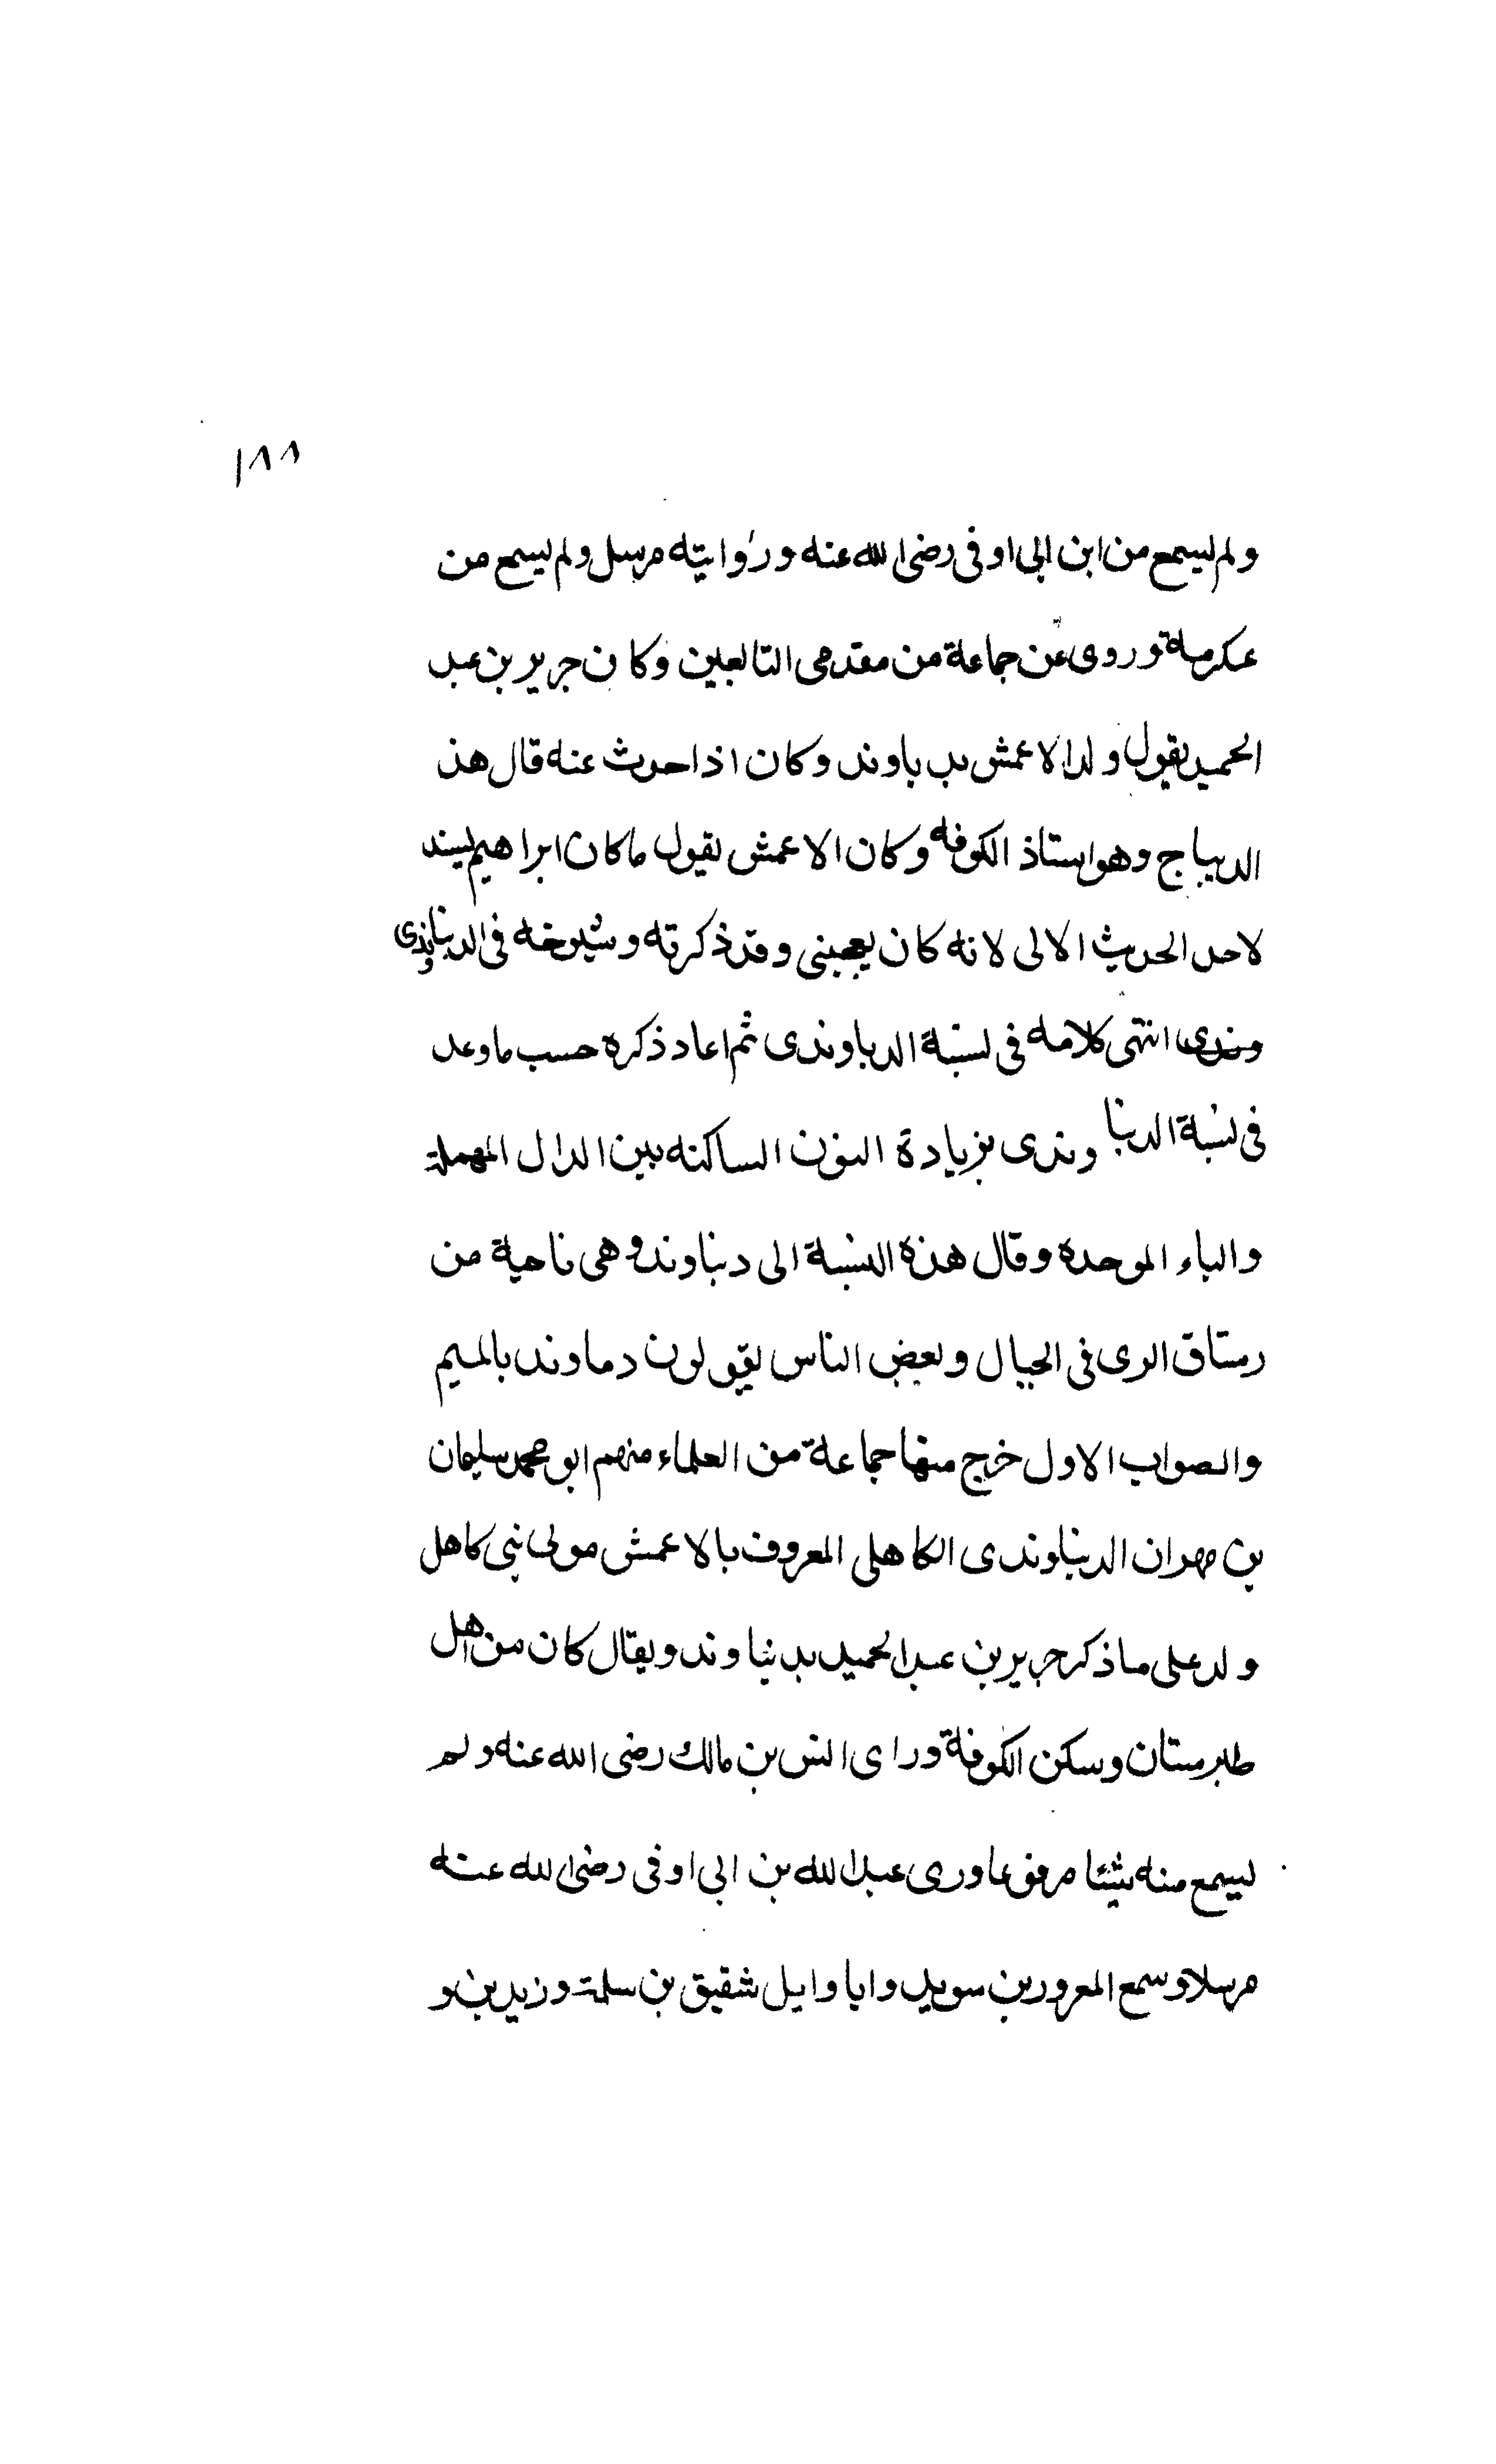 ١٨٨
ولم يسمع من ابن ابى اوفى رضى الله عنه وروايته مرسل ولم يسمع من
عكرمة وروى عن جماعة من مقدمى التابعين وكان جرير بن عبد
الحميد يقول ولد الاعمش بدباوند وكان اذا حدث عنه قال هذ
الديباج وهو استاذ الكوفه وكان الاعمش يقول ما كان ابراهيم يسند
لاحد الحديث الا لى لانه كان يعجبنى وقد ذكرته وشيوخه فى الدنباوندى
وندى انتهى كلامه فى نسبة الدباوندى ثم اعاد ذكره حسب ما وعد
فى نسبة الدنبا وندى بزيادة النون الساكنه بين الدال المهملة
والباء الموحده وقال هذه النسبة الى دنباوند وهى ناحية من
رستاق الرى فى الجبال وبعض الناس يقولون دماوند بالميم
والصواب الاول خرج منها جماعة من العلماء منهم ابو محمد سليمان
بن مهران الدنباوندى الكاهلى المعروف بالاعمش مولى بنى كاهل
ولد على ما ذكر جرير بن عبد الحميد بدنباوند ويقال كان من اهل
طبرستان وسكن الكوفة وراى انس بن مالك رضى الله عنه ولم
يسمع منه شيئا مرفوعا ورى عبد الله بن ابى اوفى رضى الله عنه
مرسلا وسمع المعرور بن سويد وابا وايل شقيق بن سلمة وزيد بن و